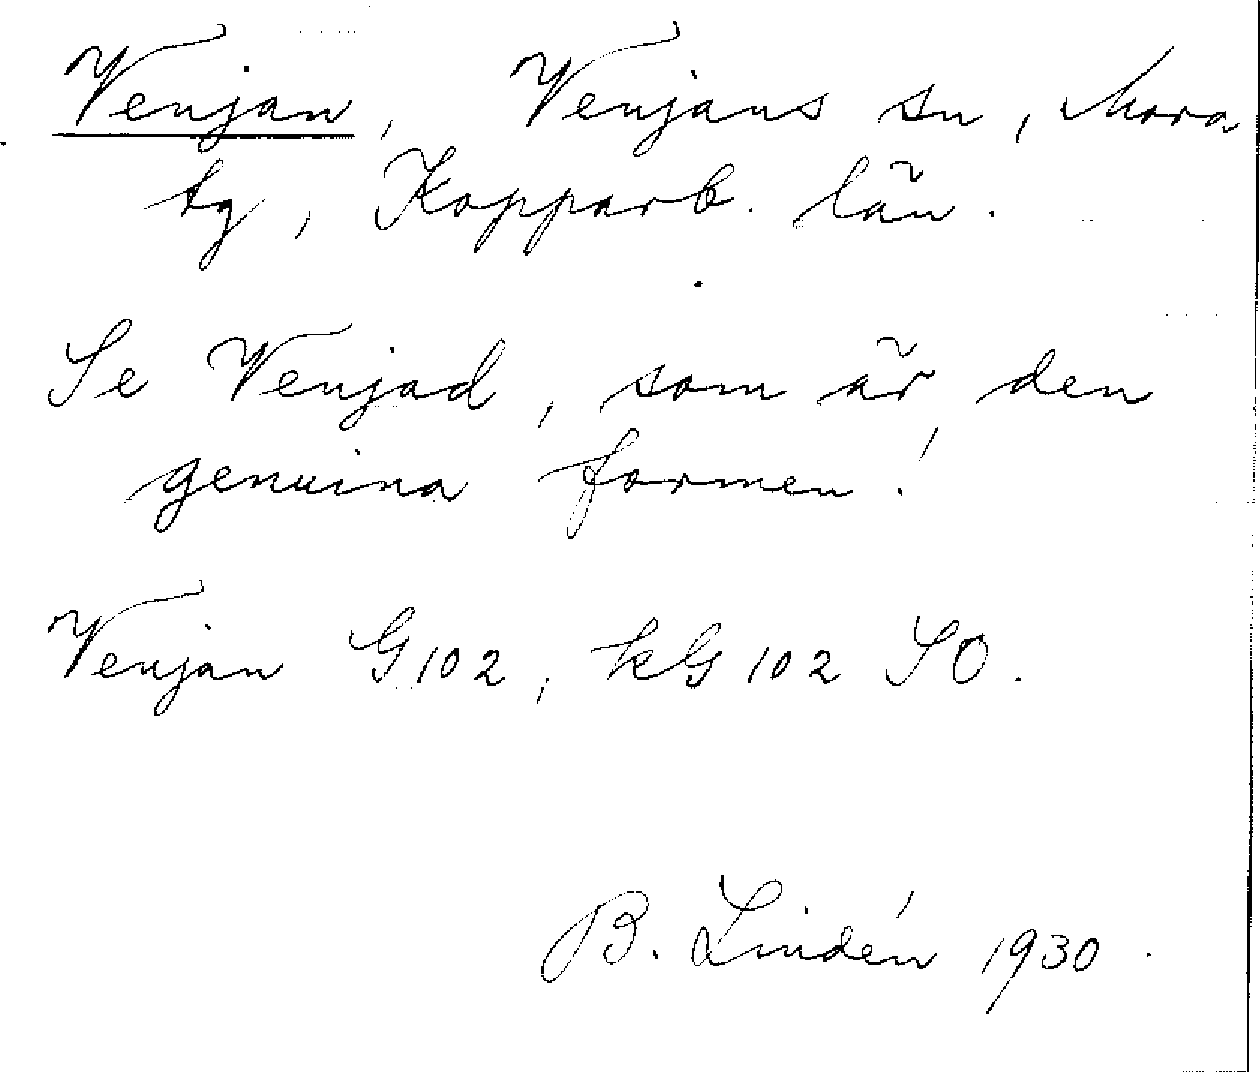 Venjan, Venjans sn, Mora
tg, Kopparb. län.
Se Venjad, som är den
genuina formen!
Venjan G102, kG 102 SO.
B. Lindén 1930.